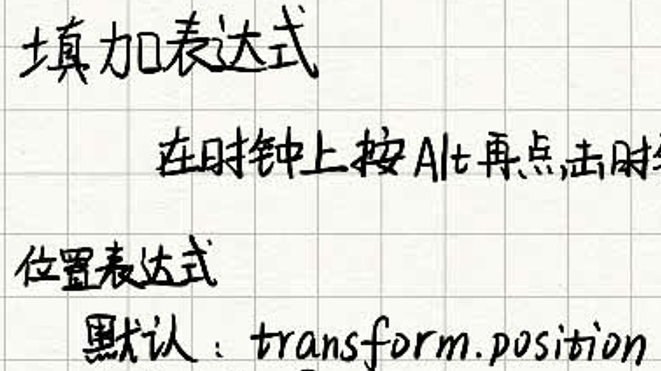 填加表达式
在时钟上按Alt再点击时
位置表达式
默认：transform.position